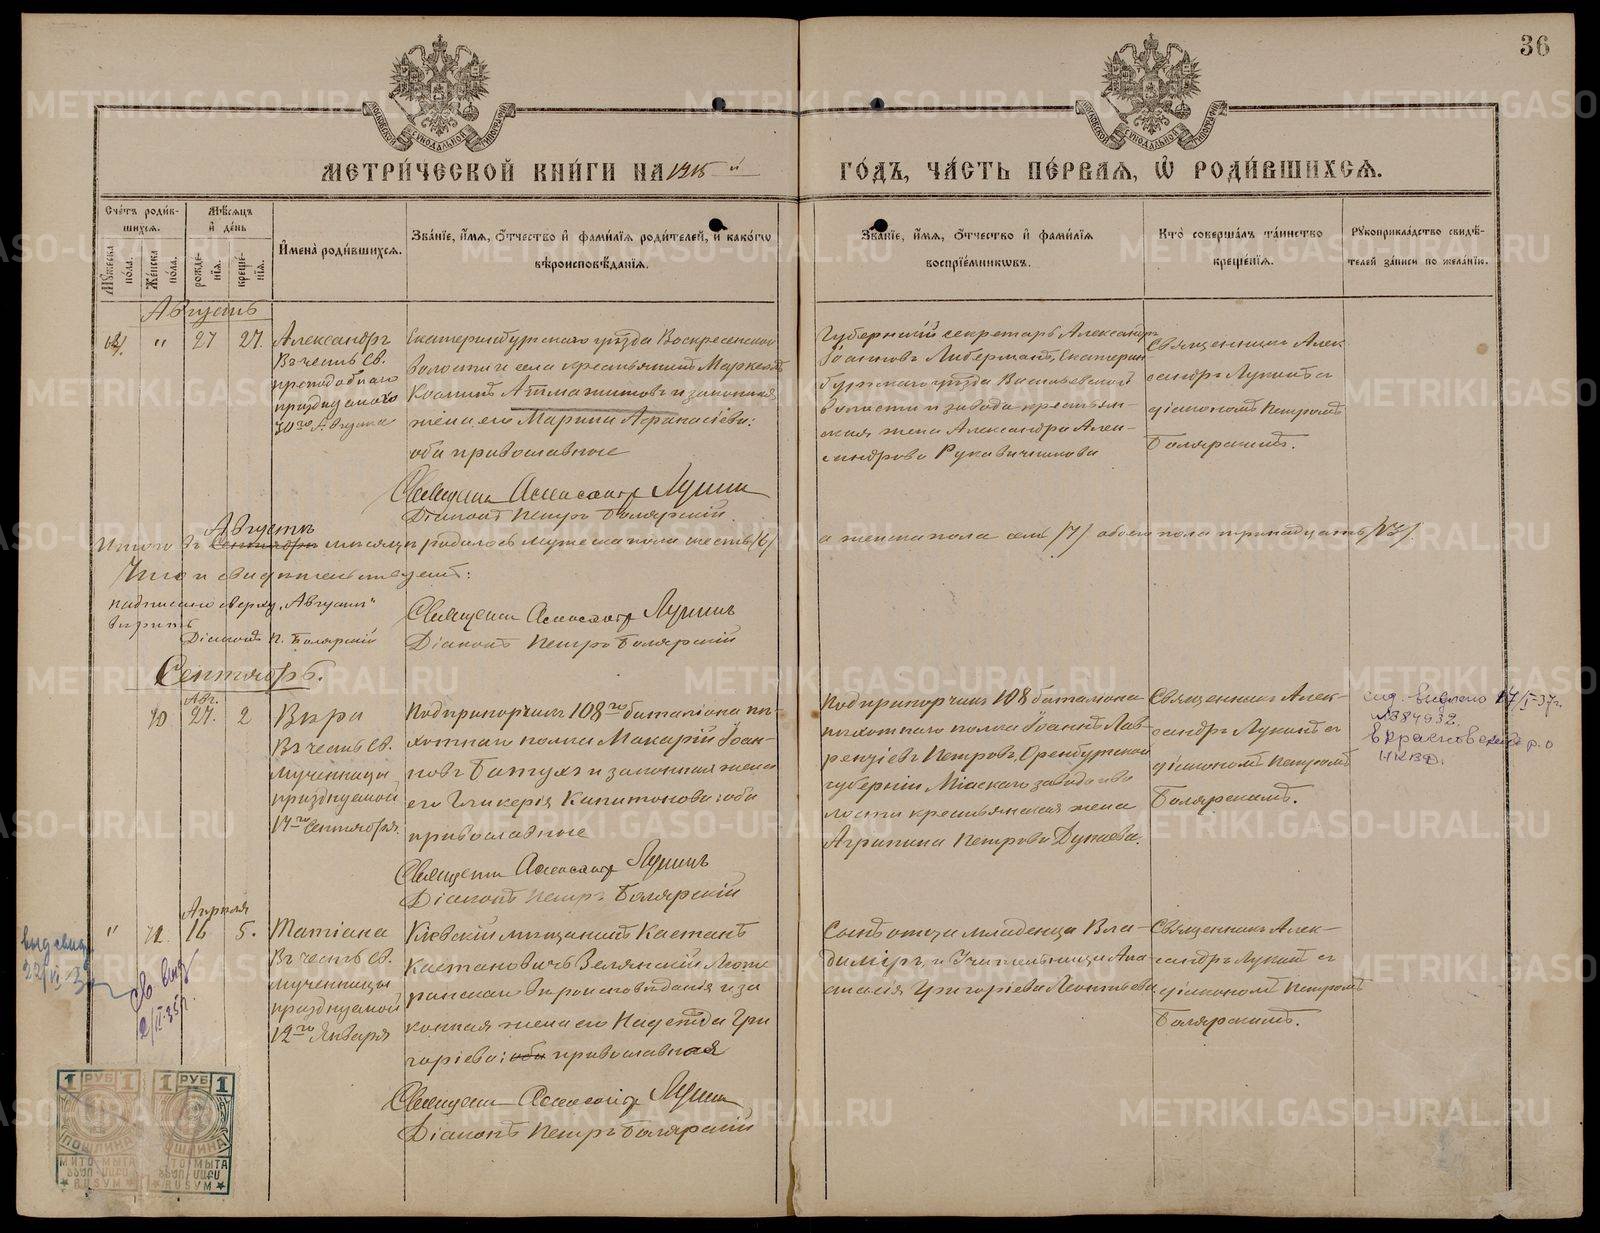 36
МЕТРИ́ЧЕСКОЙ КНИ́ГИ НА 1915 й
ГО́ДЪ, ЧА́СТЬ ПЕ́РВАЯ, Ѽ РОДИ́ВШИХСѦ.
Сче́тъ роди́в-
шихся.
Мѣ́сяцъ
и҆ де́нь
Мꙋ́жеска
по́ла.
Же́нска
по́ла.
рожде́-
нїя.
креще́-
нїя.
И҆мена̀ роди́вшихся.
Зва́нїе, и҆́мя, о҆́тчество и҆ фами́лїя роди́телей, и҆ како́гѡ
вѣроисповѣ́данїя.
Зва́нїе, и҆́мя, о҆́тчество и҆ фами́лїя
воспрїе́мникѡвъ.
Кто̀ соверша́лъ та́инство
креще́нїя.
Рꙋкоприкла́дство свидѣ́-
телей за́писи по жела́нїю.
Августъ
" 27 27.
Александръ
Въ честь Св.
преподобнаго
празднуемаго
30го Августа
Екатеринбургскаго уѣзда Воскресенской
волости и села крестьянинъ
и законная
жена его Марина Афанасіева:
оба православные
Священникъ Александръ Лукинъ
Діаконъ Петръ Болярскій
Губернскій секретарь Александръ
Іоанновъ Либерманъ, Екатерин-
бургскаго уѣзда Васильевской
волости и завода крестьян-
ская жена Александра Алек-
сандрова Рукавишникова
Священникъ Алек-
сандръ Лукинъ съ
діакономъ Петромъ
Болярскимъ.
Августѣ
Итого въ Сентябрѣ мѣсяцѣ родилось мужеска пола шесть /6/
а женска пола семь /7/ обоего пола тринадцать /13/.
Что и свидѣтельствуемъ:
надписано сверху "Августѣ"
вѣрить
Діаконъ П. Болярскій
Священникъ Александръ Лукинъ
Діаконъ Петръ Болярскій
Сентябрь.
Авг.
10 27. 2
Вѣра
Въ честь Св.
мученицы
празднуемой
17го Сентября.
Подпрапорщикъ 108го баталіона пѣ-
хотнаго полка Макарій Іоан-
новъ Батухъ и законная жена
его Гликерія Капитонова: оба
православные
Священникъ Александръ Лукинъ
Діаконъ Петръ Болярскій
Подпрапорщикъ 108 баталіона
пѣхотнаго полка Іоаннъ Лав-
рентіевъ Петровъ, Оренбургской
губерніи Міасскаго завода и во-
лости крестьянская жена
Агрипина Петрова Дунаева.
Священникъ Алек-
сандръ Лукинъ съ
діакономъ Петромъ
Болярскимъ.
17/I-37г.
№384932.
р.о
НКВД.
Апрѣля
" 11. 16 5.
Татіана
Въ честь Св.
мученицы
празднуемой
12го Января
Кіевскій мѣщанинъ Каетанъ
Каетановичъ Зелянскій Люте-
ранскаго вѣроисповѣданія и за-
конная жена его Надежда Гри-
горіева: оба православная
Священникъ Александръ Лукинъ
Діаконъ Петръ Болярскій
Сынъ отца младенца Вла-
димиръ, и Учительница Ана-
стасія Григоріева Леонтьева
Священникъ Алек-
сандръ Лукинъ съ
діакономъ Петромъ
Болярскимъ.
2/II-35г.
1 РУБ 1
1 РУБ 1
ПОШЛИНА
ПОШЛИНА
METRIKI.GASO-URAL.RU